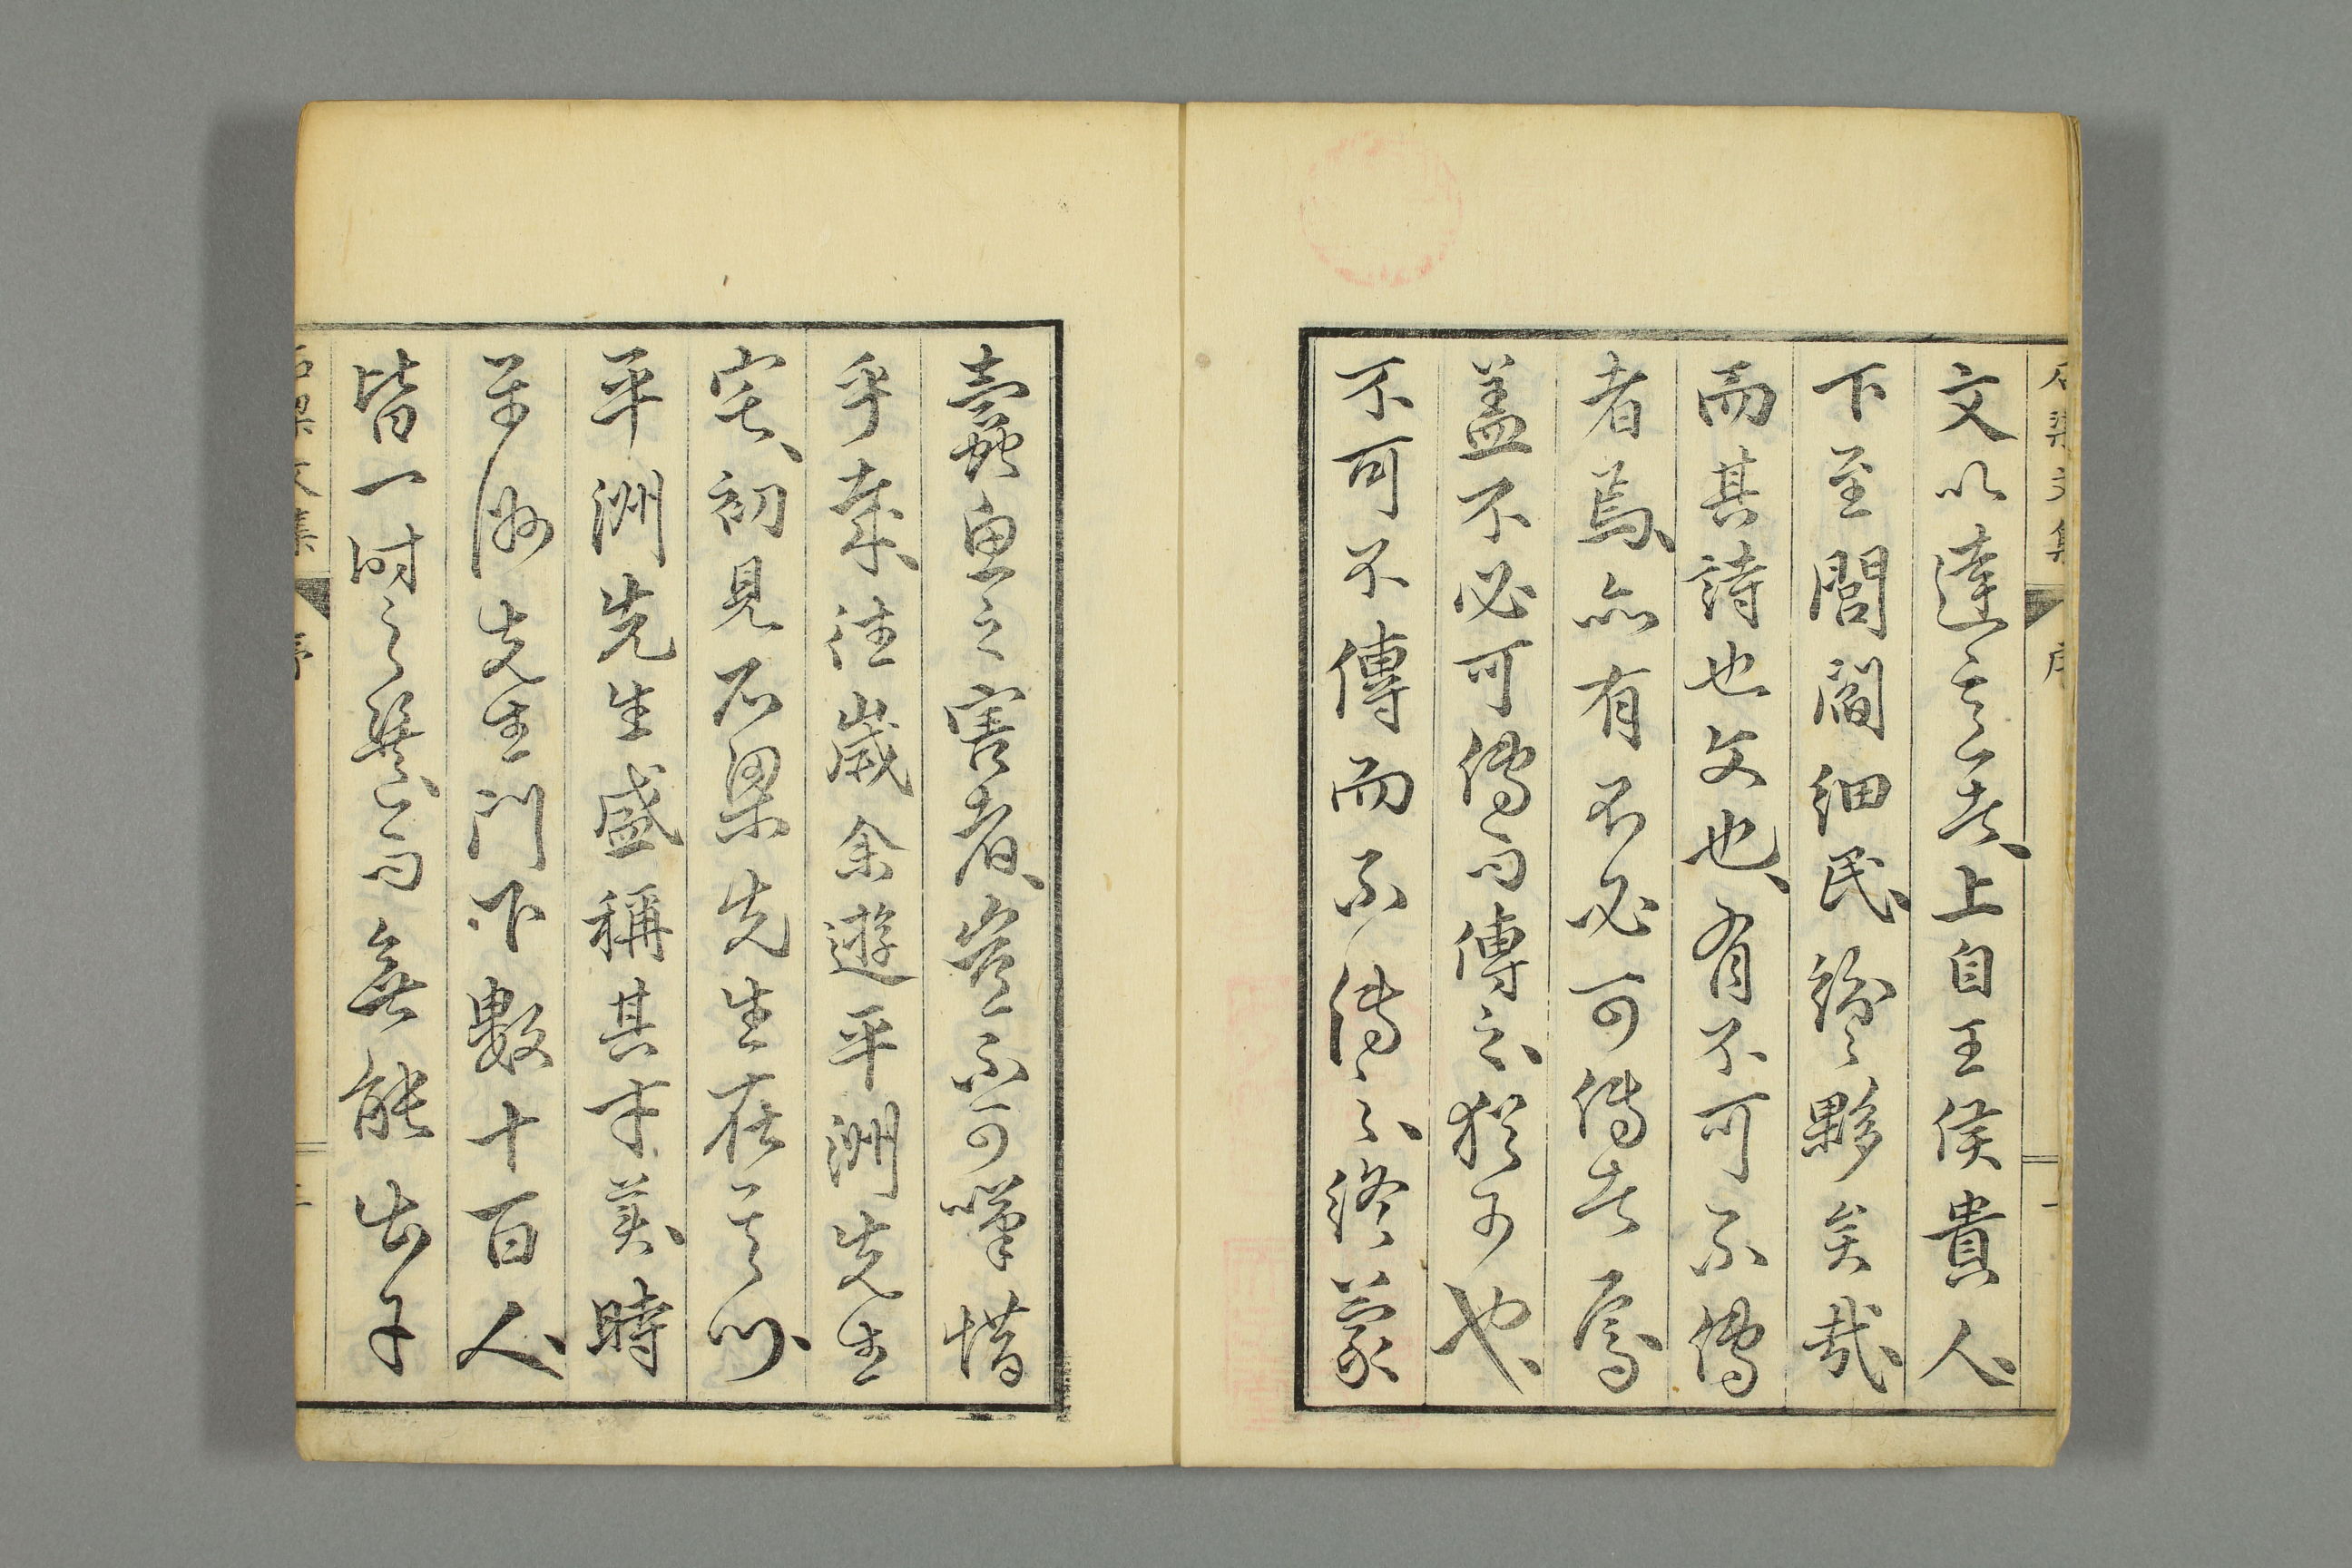 文以達意者、上自王侯貴人、
下至閭閻細民、紛々夥矣哉、
而其詩也文也、有不可不傳
者焉、亦有不必可傳者焉、
盖不必可傳而傳之、猶可也、
不可不傳而不傳之、終蒙
蠹魚之害者、豈不可嘆惜
乎哉、往歲余遊平洲先生
宅、初見石梁先生在其側、
平洲先生盛稱其才英、時
平洲先生門下數十百人、
皆一時之雋、而無能出子
石梁文集
序
一
石梁文集
序